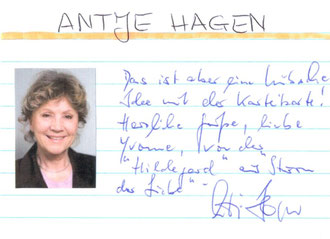 ANTJE HAGEN
Das ist aber eine hübsche
Idee mit der Karteikarte!
Herzliche Grüße, liebe
Yvonne, von der
"Hildegard" aus Sturm
der Liebe"